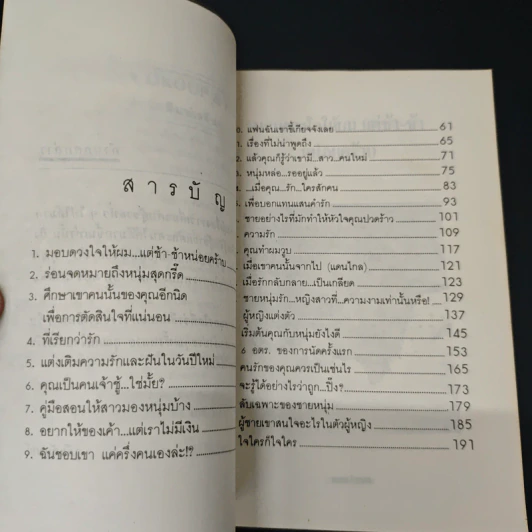 สารบัญ
1. มอบดวงใจให้ผม...แต่ช้า-ช้าหน่อยคร้าบ
2. ร่อนจดหมายถึงหนุ่มสุดกรี๊ด
3. ศึกษาเขาคนนั้นของคุณอีกนิด
เพื่อการตัดสินใจที่แน่นอน
4. ที่เรียกว่ารัก
5. แต่งเติมความรักและฝันในวันปีใหม่
6. คุณเป็นคนเจ้าชู้...ใช่มั้ย?
7. คู่มือสอนให้สาวมองหนุ่มบ้าง
8. อยากให้ของเค้า...แต่เราไม่มีเงิน
9. ฉันชอบเขา แค่ครึ่งคนเองล่ะ!?
แฟนฉันเขาขี้เกียจจังเลย 61
เรื่องที่ไม่น่าพูดถึง 65
แล้วคุณก็รู้ว่าเขามี...สาว...คนใหม่ 71
หนุ่มหล่อ...รออยู่แล้ว 75
...เมื่อคุณ...รัก...ใครสักคน 83
เพื่อบอกแทนแสนคำรัก 93
ชายอย่างไรที่มักทำให้หัวใจคุณปวดร้าว 101
ความรัก 109
คุณทำผมวูบ 117
เมื่อเขาคนนั้นจากไป (แดนไกล) 121
เมื่อรักกลับกลาย...เป็นเกลียด 123
ชายหนุ่มรัก...หญิงสาวที่...ความงามเท่านั้นหรือ! 129
ผู้หญิงแต่งตัว 137
เริ่มต้นคุณกับหนุ่มยังไงดี 145
6 อตร. ของการนัดครั้งแรก 153
คนรักของคุณควรเป็นเช่นไร 165
จะรู้ได้อย่างไรว่าถูก...ปิ๊ง? 173
ลับเฉพาะของชายหนุ่ม 179
ผู้ชายเขาสนใจอะไรในตัวผู้หญิง 185
ใจใครก็ใจใคร 191